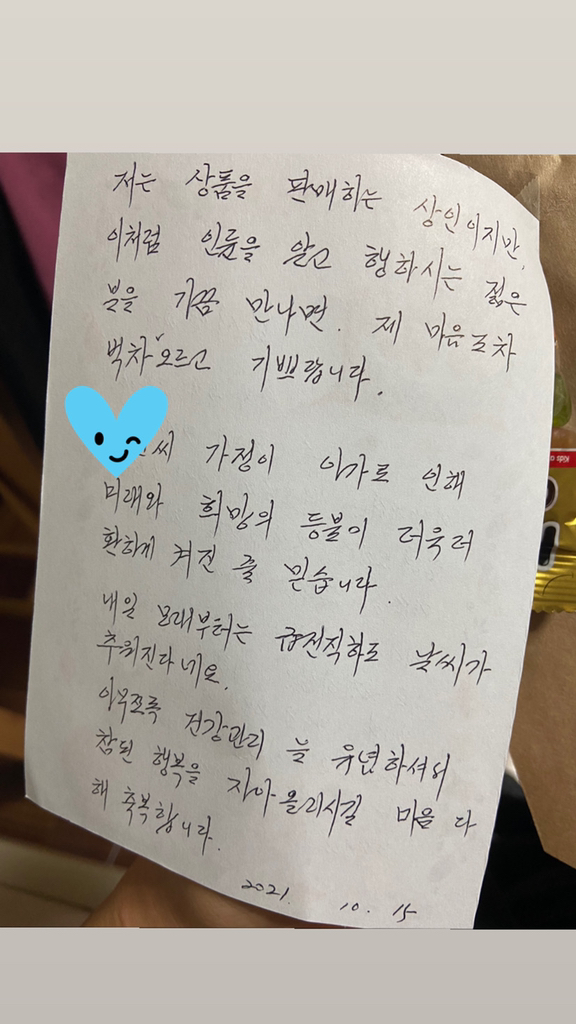 저는 상품을 판매하는 상인이지만,
이처럼 인륜을 알고 행하시는 젊은
분을 가끔 만나면. 제 마음조차
벅차오르고 기쁘답니다.
씨 가정이 아가로 인해
미래와 희망의 등불이 더욱더
환하게 켜진 줄 믿습니다.
내일 모래부터는 급전직하로 날씨가
추워진다네요.
아무쪼록 건강관리 늘 유념하셔서
참된 행복을 자아올리시길 마음 다
해 축복합니다.
2021. 10. 15